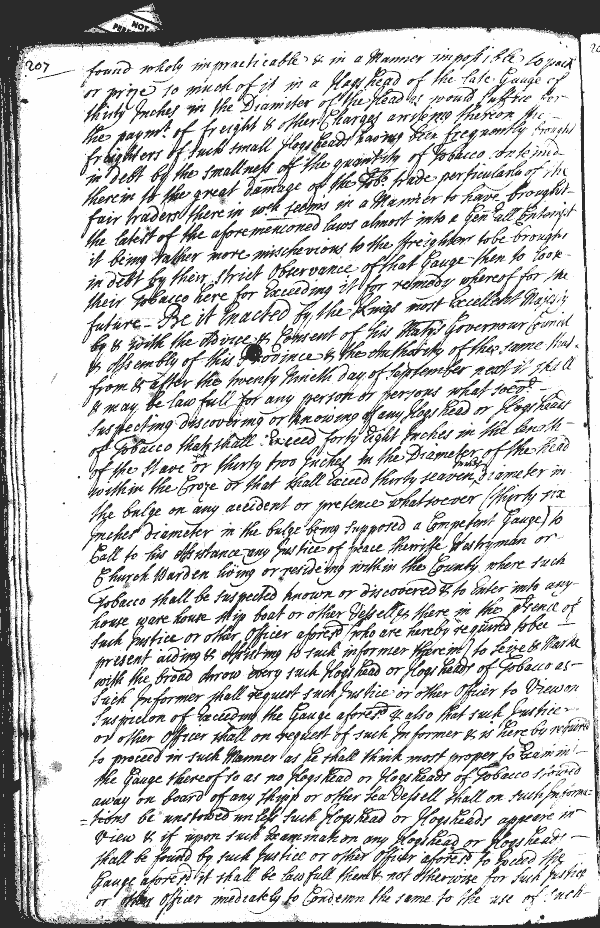 NOT
207
found wholy impracticable & in a Manner impossible to pack
or prize so much of it in a Hogshead of the late Gauge of
thirty Inches in the Diameter of the Head as would suffice for
the paymt. of freight & other Charges ariseing thereon the
freighters of such small Hogsheads haveing been frequently brought
in debt by the smallness of the quantity of Tobacco contained
therein to the great damage of the trade perticularly of the
fair traders therein wch seems in a Manner to have brought
the latest of the aforemenconed laws almost into a Gen'all
it being rather more mischevious to the freighters to be brought
in debt by their strict Observance of that Gauge then to loose
their Tobacco here for Exceeding it for remedy whereof for the
future - Be it Enacted by the Kings most Excellent Majesty
by & with the advice & Consent of his Majtys Governour Councill
& Assembly of this Province & the Authority of the same that
from & after the twenty Ninth day of September next it shall
& may be lawfull for any person or persons what soever
suspecting discovering or knowing of any Hogshead or Hogsheads
of Tobacco that shall Exceed forty Eight Inches in the length
of the Stave or thirty two Inches in the Diameter of the head
within the Croze or that shall Exceed thirty seaven inches diameter in
the bulge on any accident or pretence whatsoever (thirty six
Inches diameter in the bulge being supposed a Competent Gauge) to
Call to his assistance any Justice of peace Sherriffe Vestryman or
Church Warden living or resideing within the County where such
Tobacco shall be suspected known or discovered & to Enter into any
house ware house ship boat or other Vessell & there in the p'sence of
such Justice or other Officer aforesd. who are hereby required to be
present aiding & assisting to such informer therein) to seive & Marke
with the broad Arrow every such Hogshead or Hogsheads of Tobacco as
such Informer shall request such Justice or other Officer to View on
Suspicion of Exceeding the Gauge aforesd. & also that such Justice
or other Officer shall on request of such Informer & is hereby required
to proceed in such Manner as he shall think most proper to Examine
the Gauge thereof so as no Hogshead or Hogsheads of Tobacco stowed
away on board of any shipp or other sea Vessell shall on such informa=
=tions be unstowed unless such Hogshead or Hogsheads appeare in
View & if upon such Examination any Hogshead or Hogsheads
shall be found by such Justice or other Officer aforesd. to Exceed the
Gauge aforesd. it shall be lawfull then & not otherwise for such Justice
or other Officer imediately to Condemn the same to the use of such